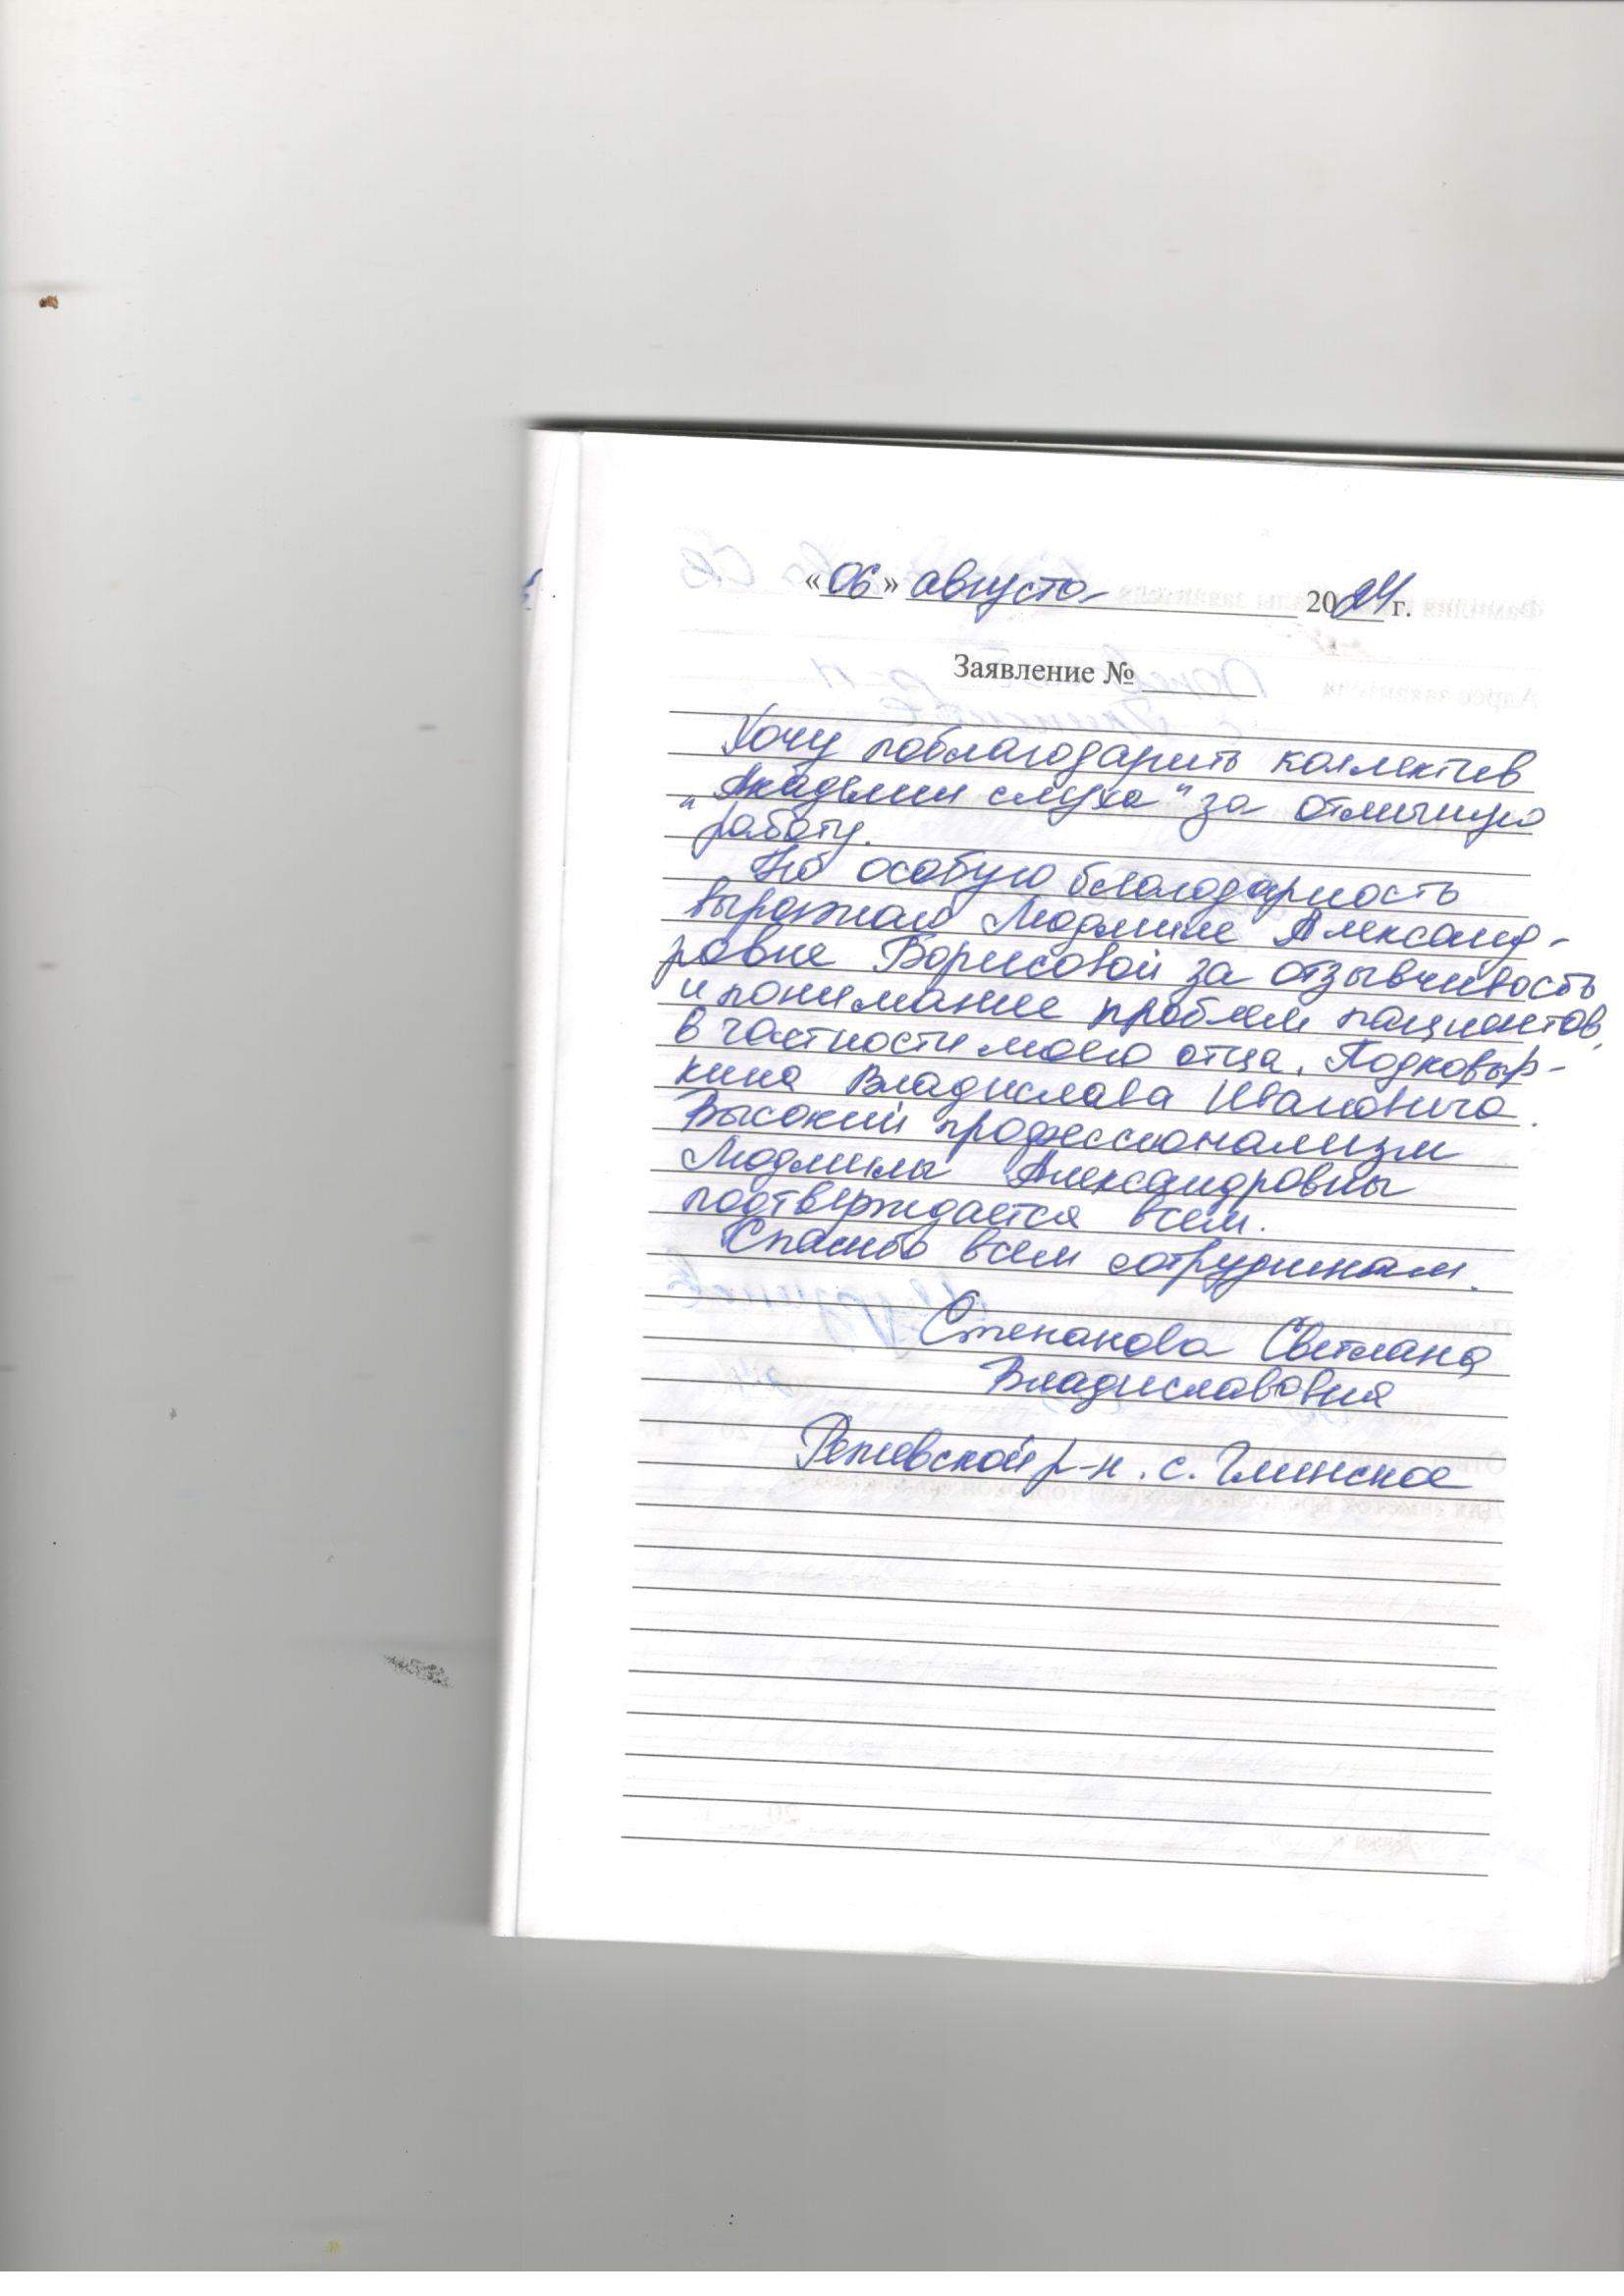 «06» августа 2024 г.
Заявление № ______
Хочу поблагодарить коллектив
"Академии слуха" за отличную
работу.
Но особую благодарность
выражаю Людмиле Александ-
ровне Борисовой за отзывчивость
и понимание проблем пациентов,
в частности моего отца, Подковыр-
кина Владислава Ивановича.
Высокий профессионализм
Людмилы Александровны
подтверждается всем.
Спасибо всем сотрудникам.
Степанова Светлана
Владиславовна
Режевской р-н. с. Глинское